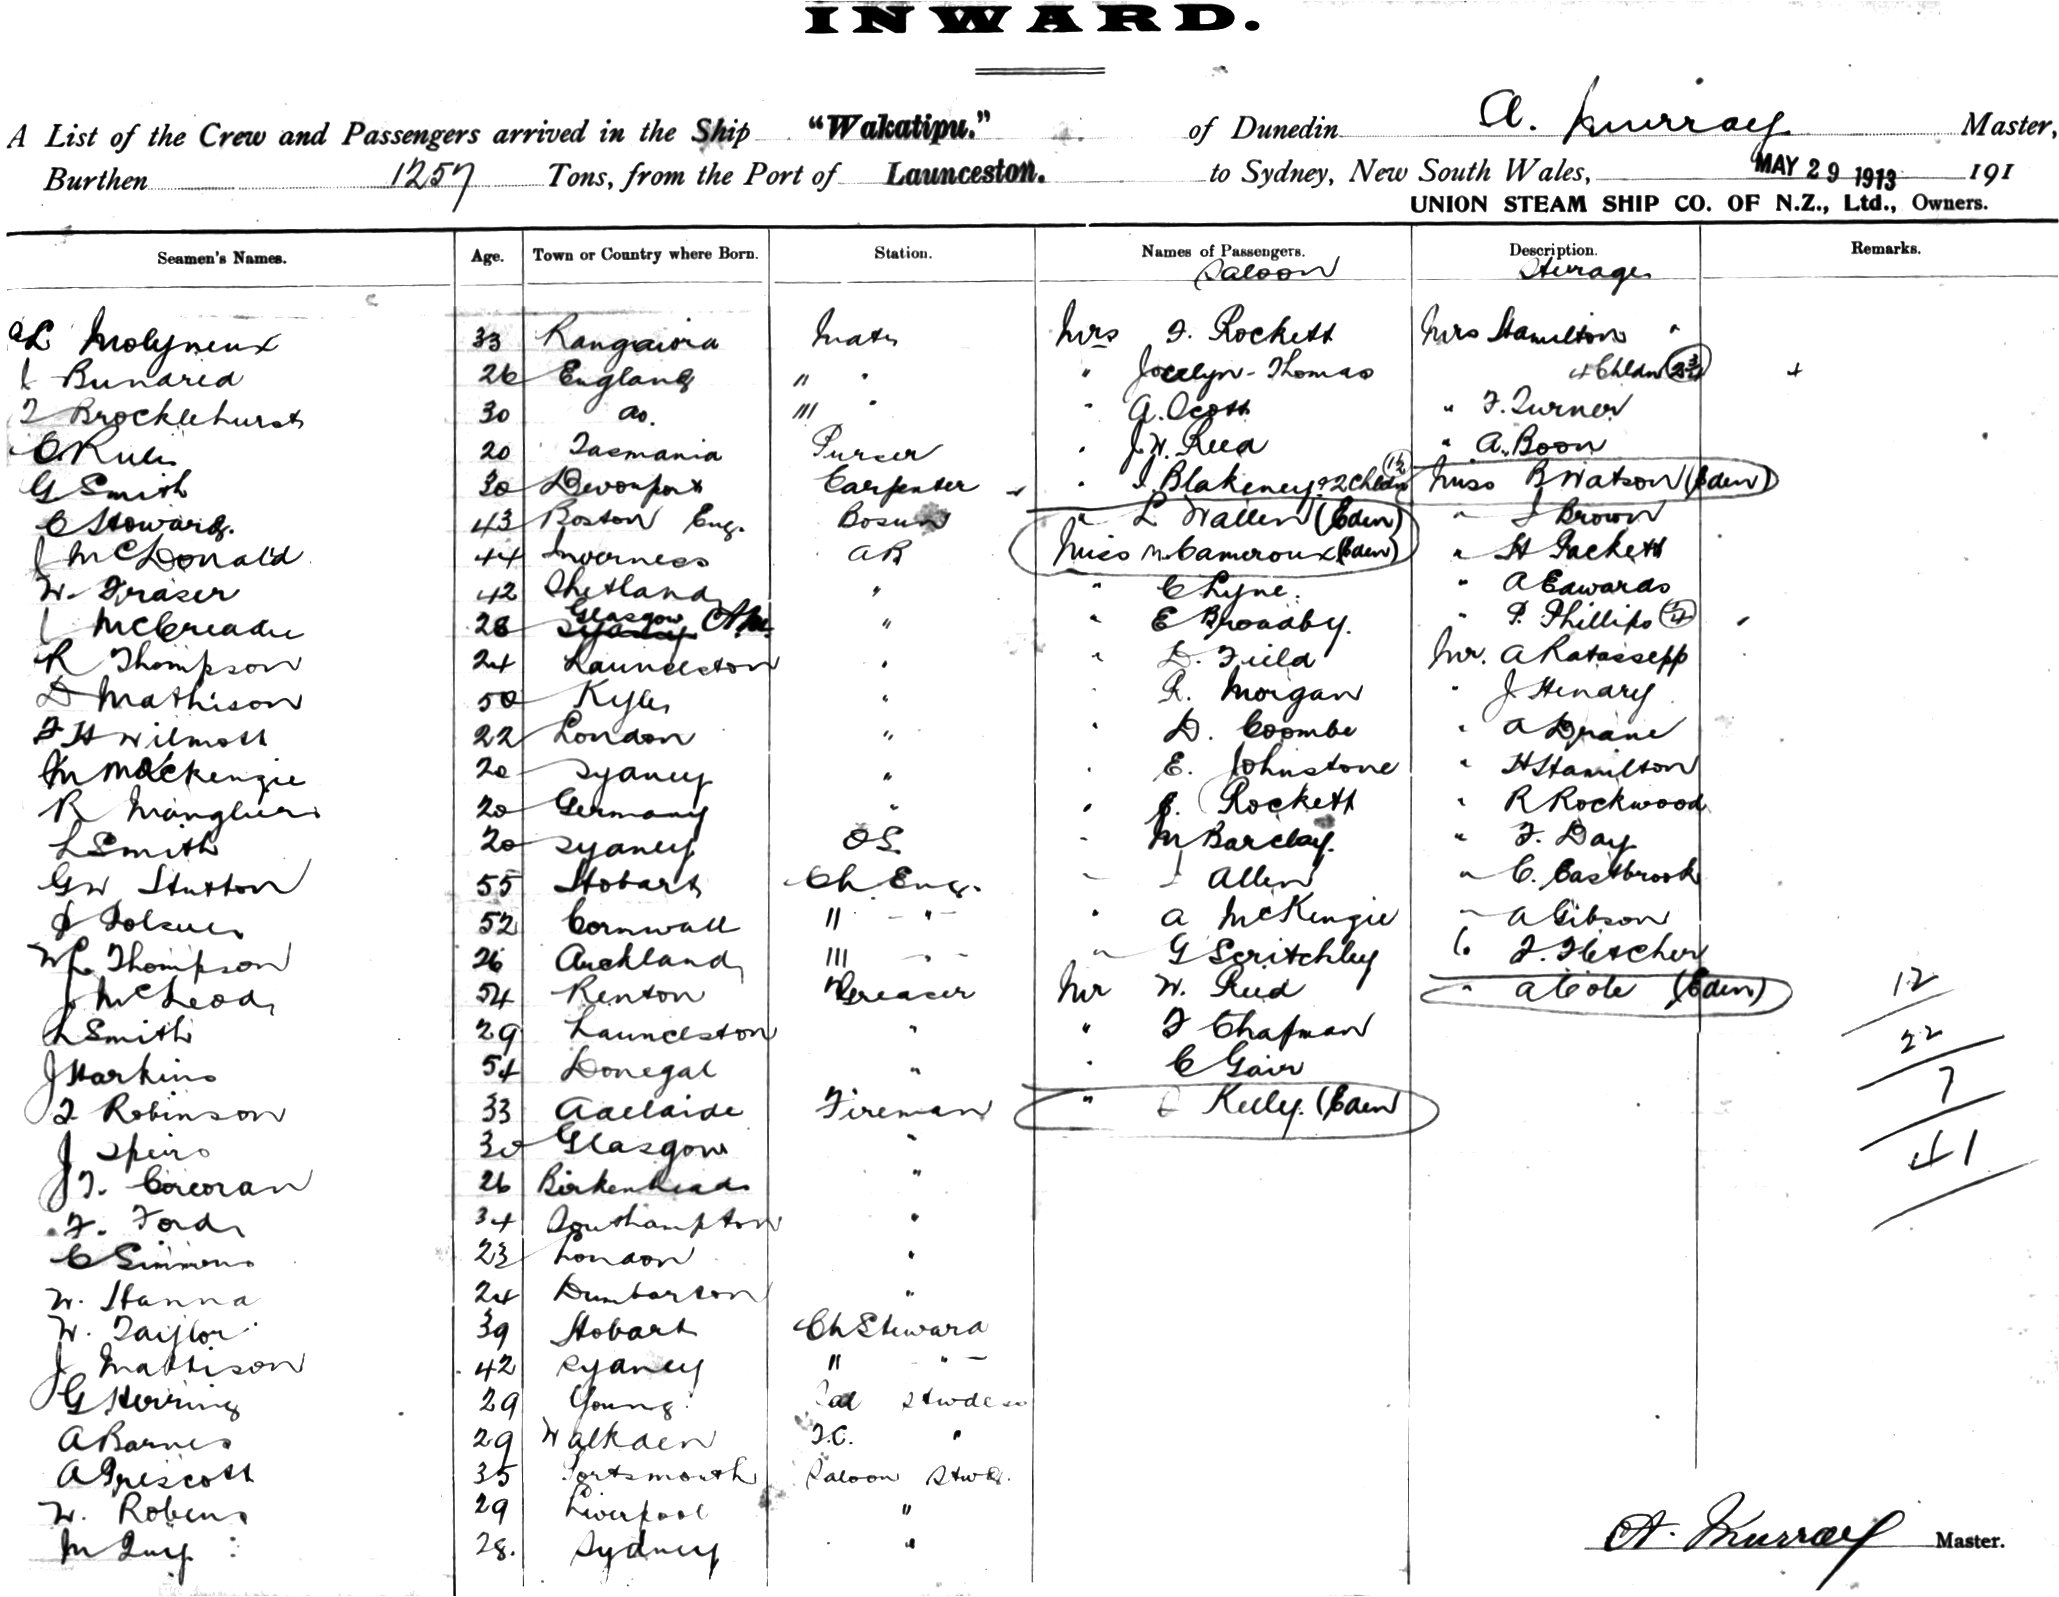 INWARD.
A List of the Crew and Passengers arrived in the Ship "Wakatipu." of Dunedin A. Murray Master,
Burthen 1257 Tons, from the Port of Launceston. to Sydney, New South Wales, MAY 29 1913 191
UNION STEAM SHIP CO. OF N.Z., Ltd., Owners.
Seamen's Names. Age. Town or Country where Born. Station. Names of Passengers. Description. Remarks.
Saloon Steerage
L Molyneux 33 Rangiora Mate Mrs F. Rockett Mrs Hamilton
J Bundred 26 England " " " Jocelyn-Thomas 4 Chldn
T Brocklehurst 30 do. ''' " " A. Scott " F. Turner
C Rule 20 Tasmania Purser " J. W. Reed " A. Boon
G Smith 30 Devonport Carpenter " I. Blakeney & 2 Chldn 1/2 Miss B Watson (Eden)
C Steward. 43 Boston Eng. Bosun " L Wallen (Eden) " J Brown
J McDonald 44 Inverness AB Miss M Cameroux (Eden) " H Packett
W. Fraser 42 Shetland " " C Lyne. " A Edwards
J McCreadie 28 Glasgow Sydney AM " " E Broadby. " P. Phillips
R Thompson 24 Launceston " " D. Field Mr. A Ratassepp
D Mathison 50 Kyle " " R. Morgan " J Hendry
F H Wilmott 22 London " " D. Coombe " A Drane
M McKenzie 20 Sydney " " E. Johnstone " H Hamilton
R Manglier 20 Germany " " J. Rockett " R Rockwood
L Smith 20 Sydney OS " M Barclay. " F. Day
G W Stutton 55 Hobart Ch Eng. " J Allen " C. Eastbrook
52 Cornwall " " " A McKenzie " A Gibson
W L Thompson 26 Auckland ''' " " G Scritchley " F. Fletcher
J McLeod 54 Renton Greaser Mr W. Reed " A Cole (Eden) 12
L Smith 29 Launceston " " F Chapman 22
J Harkins 54 Donegal " " C Gair 7
T Robinson 33 Adelaide Fireman " Kelly. (Eden 41
J Speirs 30 Glasgow "
J F. Corcoran 26 Birkenhead "
F. Ford 34 Southampton "
C Simmons 23 London "
W. Hanna 24 Dumbarton "
W. Taylor 39 Hobart Ch Steward
J Mathison 42 Sydney " "
G Herring 29 Young Sal Stwdess
A Barnes 29 Walkden F.C. "
A Prescott 35 Portsmouth Saloon Stwd.
W. Robens 29 Liverpool "
M Guy 28. Sydney "
A. Murray Master.